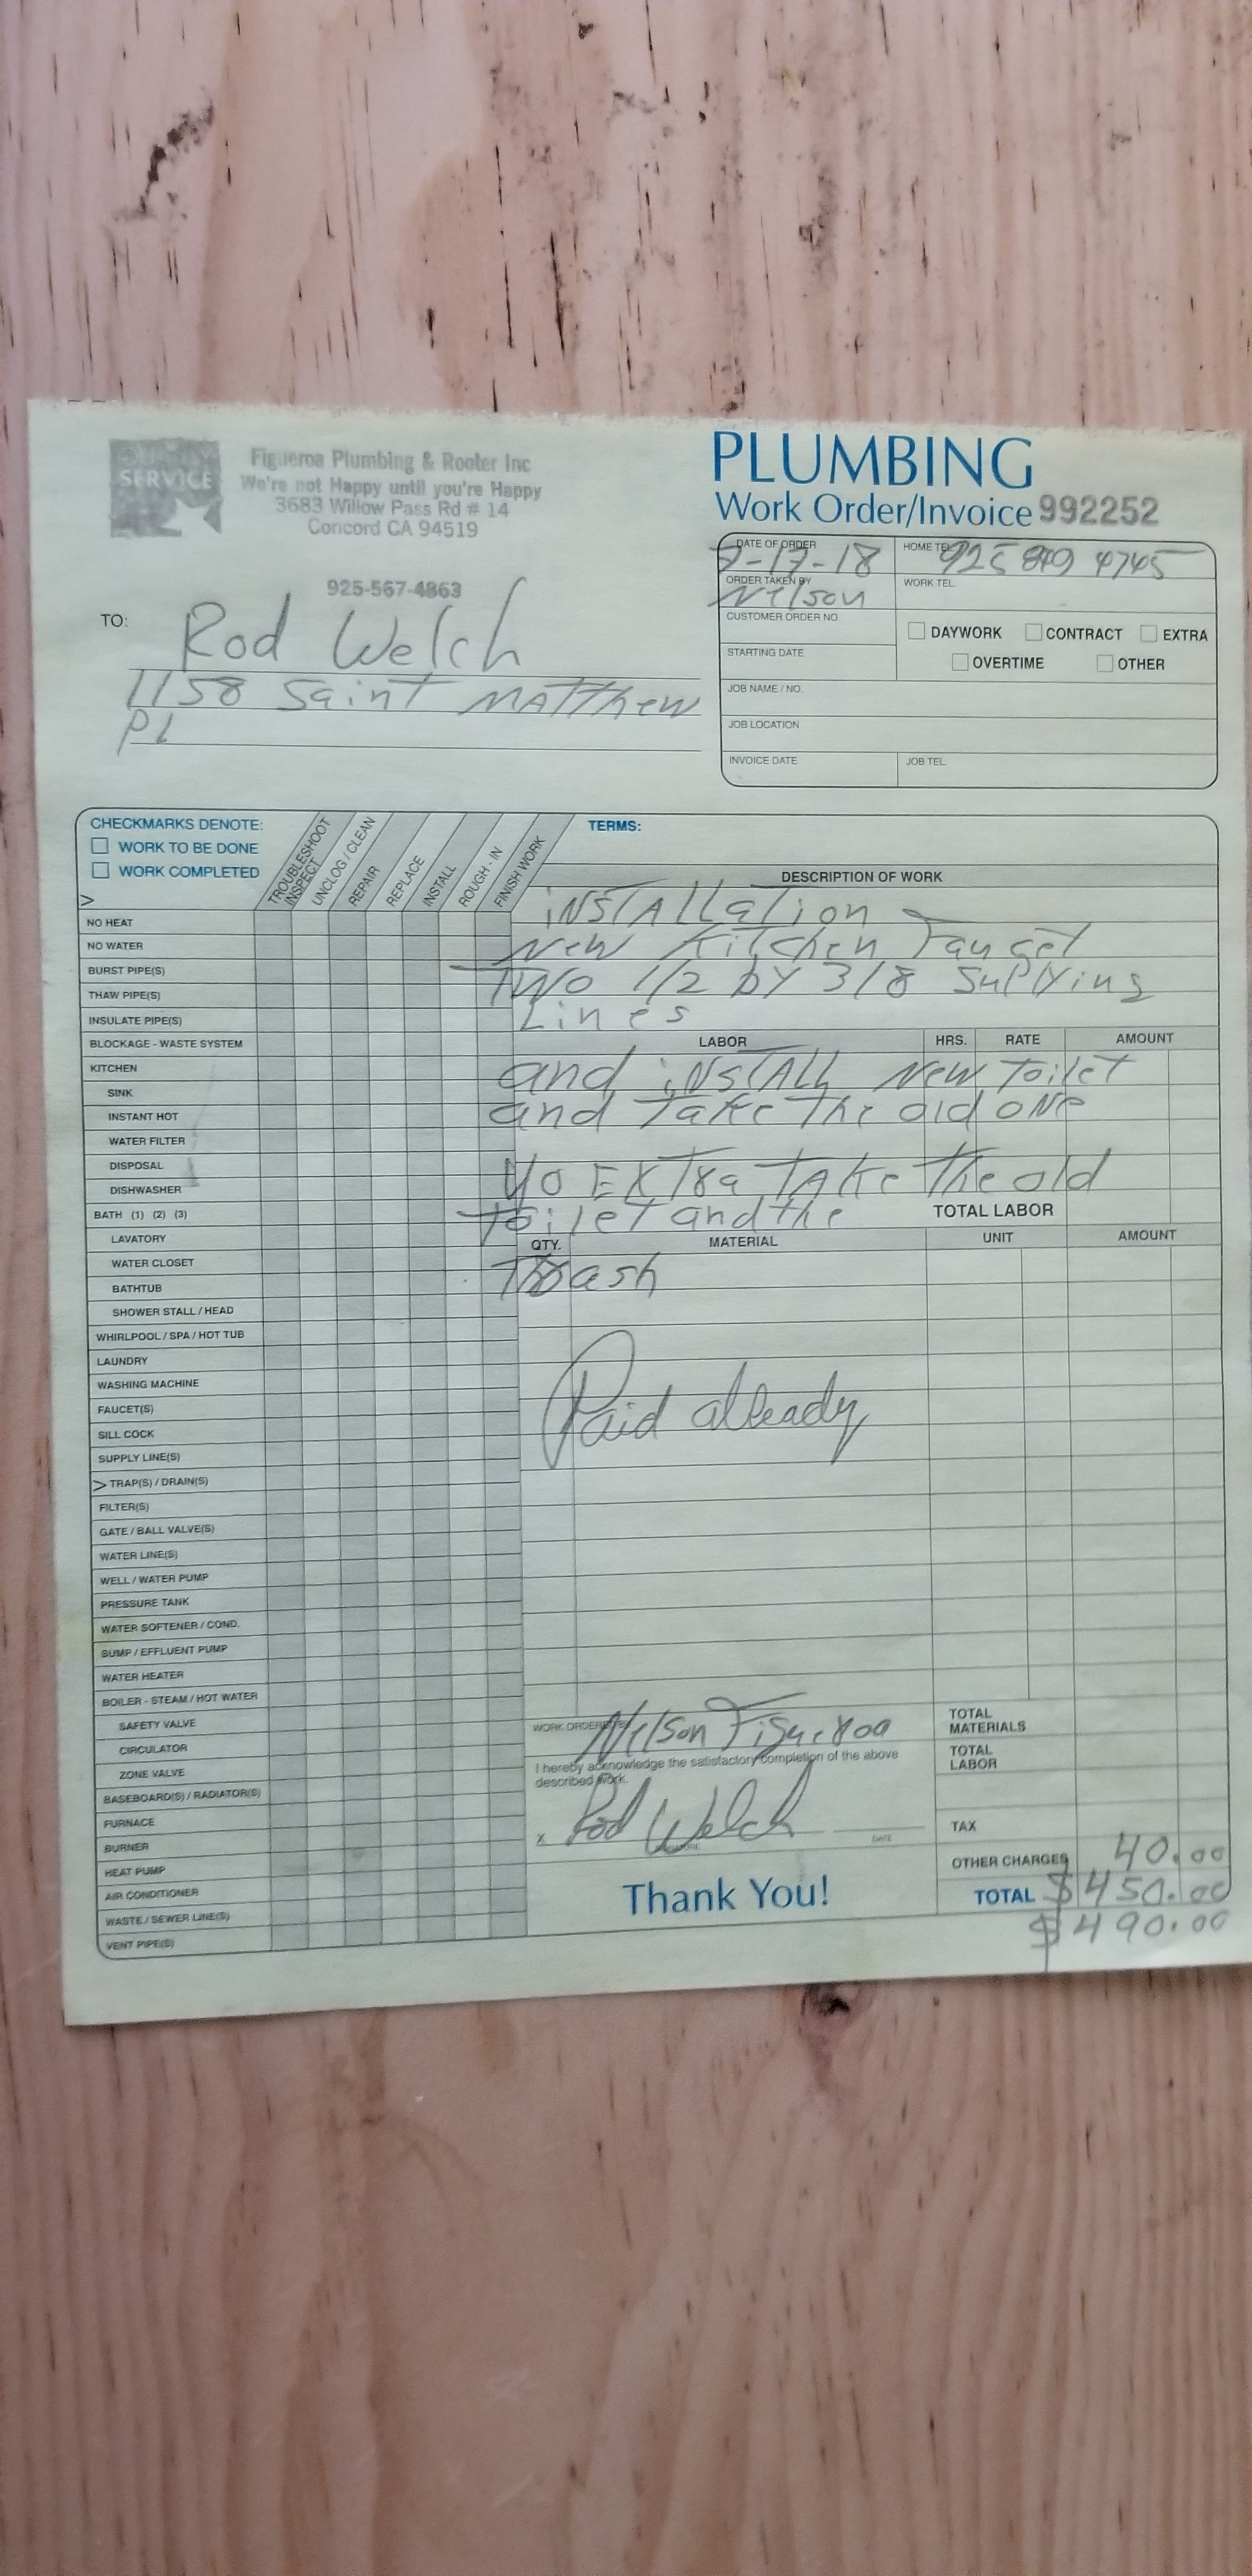 SERVICE
Figueroa Plumbing & Rooter Inc
We're not Happy until you're Happy
3683 Willow Pass Rd # 14
Concord CA 94519
925-567-4863
PLUMBING
Work Order/Invoice 992252
DATE OF ORDER
-17-18
HOME TEL.
925 849 4745
ORDER TAKEN BY
Nelson
WORK TEL.
CUSTOMER ORDER NO.
DAYWORK CONTRACT EXTRA
STARTING DATE
OVERTIME OTHER
JOB NAME / NO.
JOB LOCATION
INVOICE DATE
JOB TEL.
TO:
Rod Welch
1158 Saint Matthew
Pl
CHECKMARKS DENOTE:
WORK TO BE DONE
WORK COMPLETED
>
TROUBLESHOOT
INSPECT
UNCLOG / CLEAN
REPAIR
REPLACE
INSTALL
ROUGH - IN
FINISH WORK
NO HEAT
NO WATER
BURST PIPE(S)
THAW PIPE(S)
INSULATE PIPE(S)
BLOCKAGE - WASTE SYSTEM
KITCHEN
SINK
INSTANT HOT
WATER FILTER
DISPOSAL
DISHWASHER
BATH (1) (2) (3)
LAVATORY
WATER CLOSET
BATHTUB
SHOWER STALL / HEAD
WHIRLPOOL / SPA / HOT TUB
LAUNDRY
WASHING MACHINE
FAUCET(S)
SILL COCK
SUPPLY LINE(S)
> TRAP(S) / DRAIN(S)
FILTER(S)
GATE / BALL VALVE(S)
WATER LINE(S)
WELL / WATER PUMP
PRESSURE TANK
WATER SOFTENER / COND.
SUMP / EFFLUENT PUMP
WATER HEATER
BOILER - STEAM / HOT WATER
SAFETY VALVE
CIRCULATOR
ZONE VALVE
BASEBOARD(S) / RADIATOR(S)
FURNACE
BURNER
HEAT PUMP
AIR CONDITIONER
WASTE / SEWER LINE(S)
VENT PIPE(S)
TERMS:
DESCRIPTION OF WORK
iNSTAllation
New Kitchen Fauset
Two 1/2 by 3/8 Suplying
Lines
LABOR HRS. RATE AMOUNT
and iNSTAll New Toilet
and Take The old ONe
40 EXTRa TAke The old
Toilet and the
TOTAL LABOR
QTY. MATERIAL UNIT AMOUNT
Trash
Paid already
WORK ORDERED BY
Nelson Figueroa
I hereby acknowledge the satisfactory completion of the above
described work.
X Rod Welch
SIGNATURE
DATE
Thank You!
TOTAL
MATERIALS
TOTAL
LABOR
TAX
OTHER CHARGES 40.00
TOTAL $450.00
$490.00